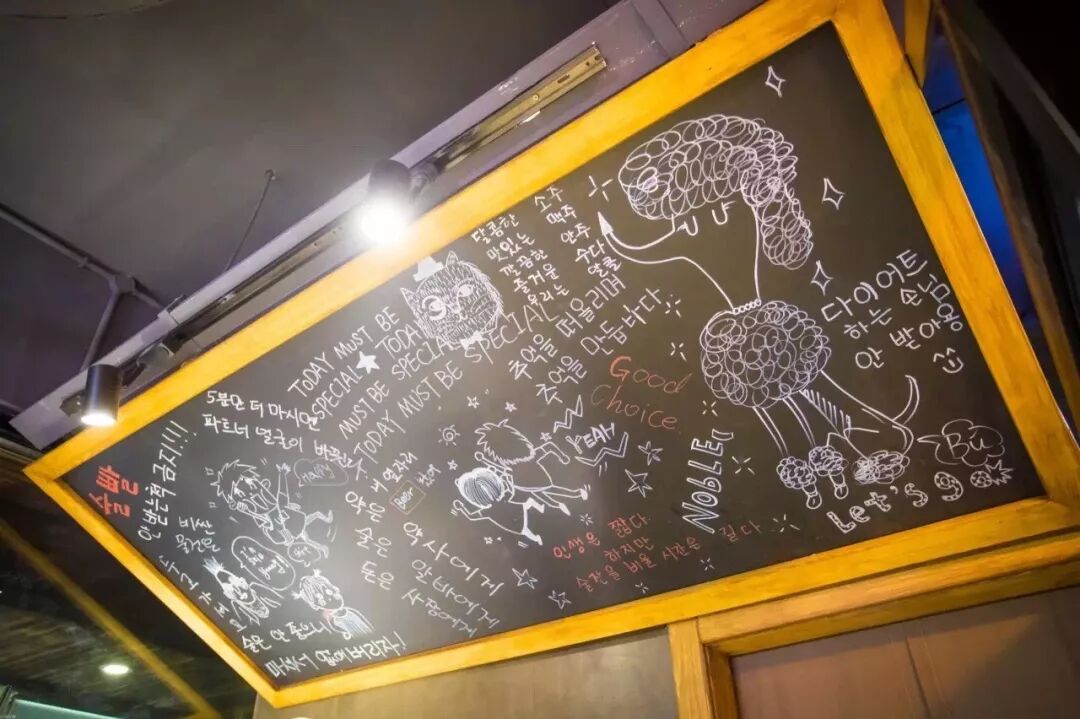 술빨
안받는척 금지!!!
비싼
물건은
두고 가세
술은 안 좋으니
마셔서 없애버리자!
5분만 더 마시면
파트너 얼굴이 바뀐다
HAPPY
TODAY MUST BE
SPECIAL TODAY
MUST BE SPECIAL
TODAY MUST BE SPECIAL
달콤한 소주
맛있는 맥주
깔끔한 안주
즐거운 수다
우리는 달콤
추억을 떠올리며
추억을 만듭니다
Good
Choice
YEAH
Beer
몸은 내 여자에게
술은 안 바에게
돈은 사장에게
인생은 짧다
하지만
술잔을 비울 시간은 길다
NOBLE
다이어트
하는 손님
안 받아용
Bu
Let's go